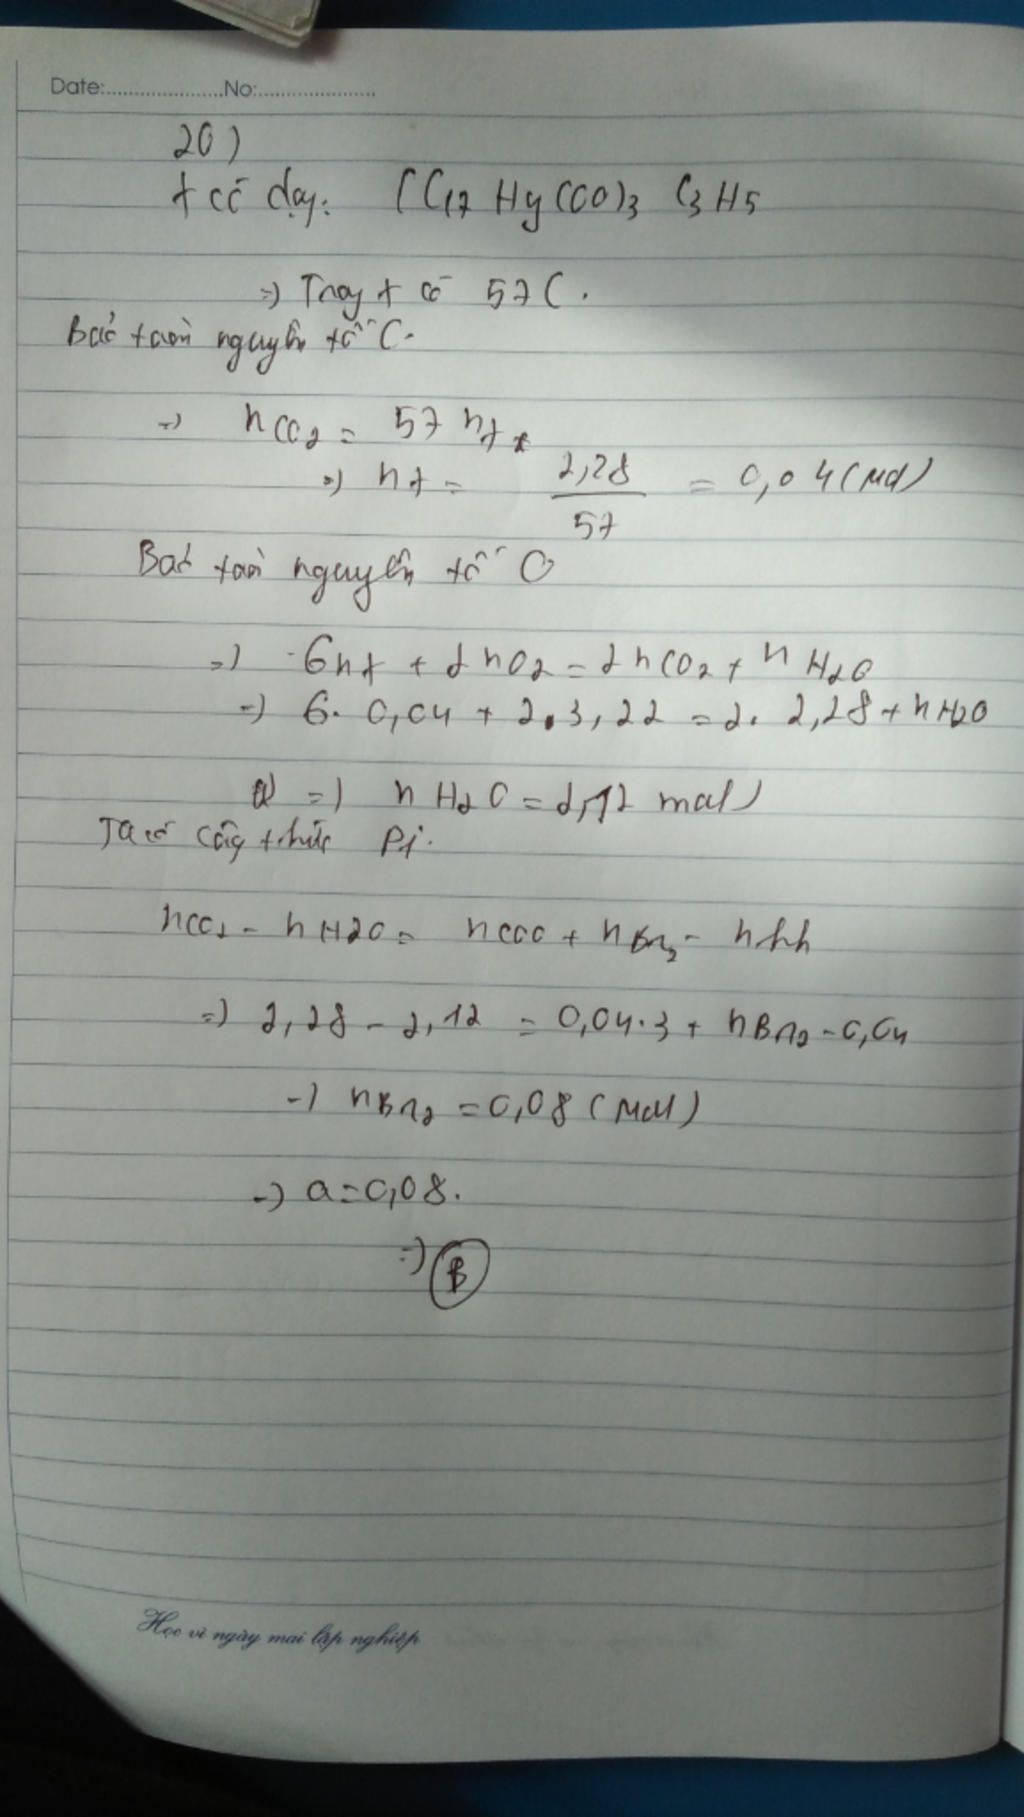 Date:....................No:....................
20)
X có dạng: (C17 Hy COO)3 C3H5
=) Trong X có 57C.
Bảo toàn nguyên tố C.
=) nCO2 = 57 nX
=) nX = 2,28 / 57 = 0,04 (mol)
Bảo toàn nguyên tố O
=) 6nX + 2nO2 = 2nCO2 + nH2O
=) 6. 0,04 + 2.3,22 = 2. 2,28 + nH2O
=) nH2O = 2,12 mol)
Ta có công thức Pi.
nCO2 - nH2O = nCOO + nBr2 - nhh
=) 2,28 - 2,12 = 0,04.3 + nBr2 - 0,04
=) nBr2 = 0,08 (mol)
=) a = 0,08.
=) B
Học vì ngày mai lập nghiệp